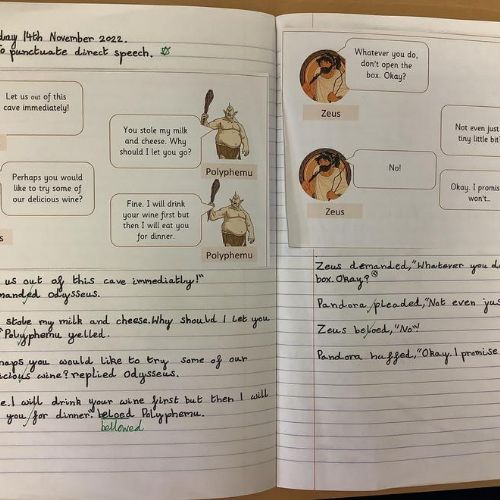 day 14th November 2022.
To punctuate direct speech.
Let us out of this
cave immediately!
You stole my milk
and cheese. Why
should I let you go?
Polyphemu
Perhaps you would
like to try some of
our delicious wine?
s
Fine. I will drink
your wine first but
then I will eat you
for dinner.
Polyphemu
us out of this cave immediatly!"
manded Odysseus.
stole my milk and cheese. Why should I let you
" Polyphemu yelled.
haps you would like to try some of our
cious wine? replied Odysseus.
e. I will drink your wine first but then I will
you for dinner." beloed Polyphemu.
bellowed
Whatever you do,
don't open the
box. Okay?
Zeus
Not even just
tiny little bit
No!
Zeus
Okay. I promise
won't.
Zeus demanded, "Whatever you do
box. Okay?
Pandora pleaded, "Not even jus
Zeus beloed, "No"!
Pandora huffed, "Okay. I promise